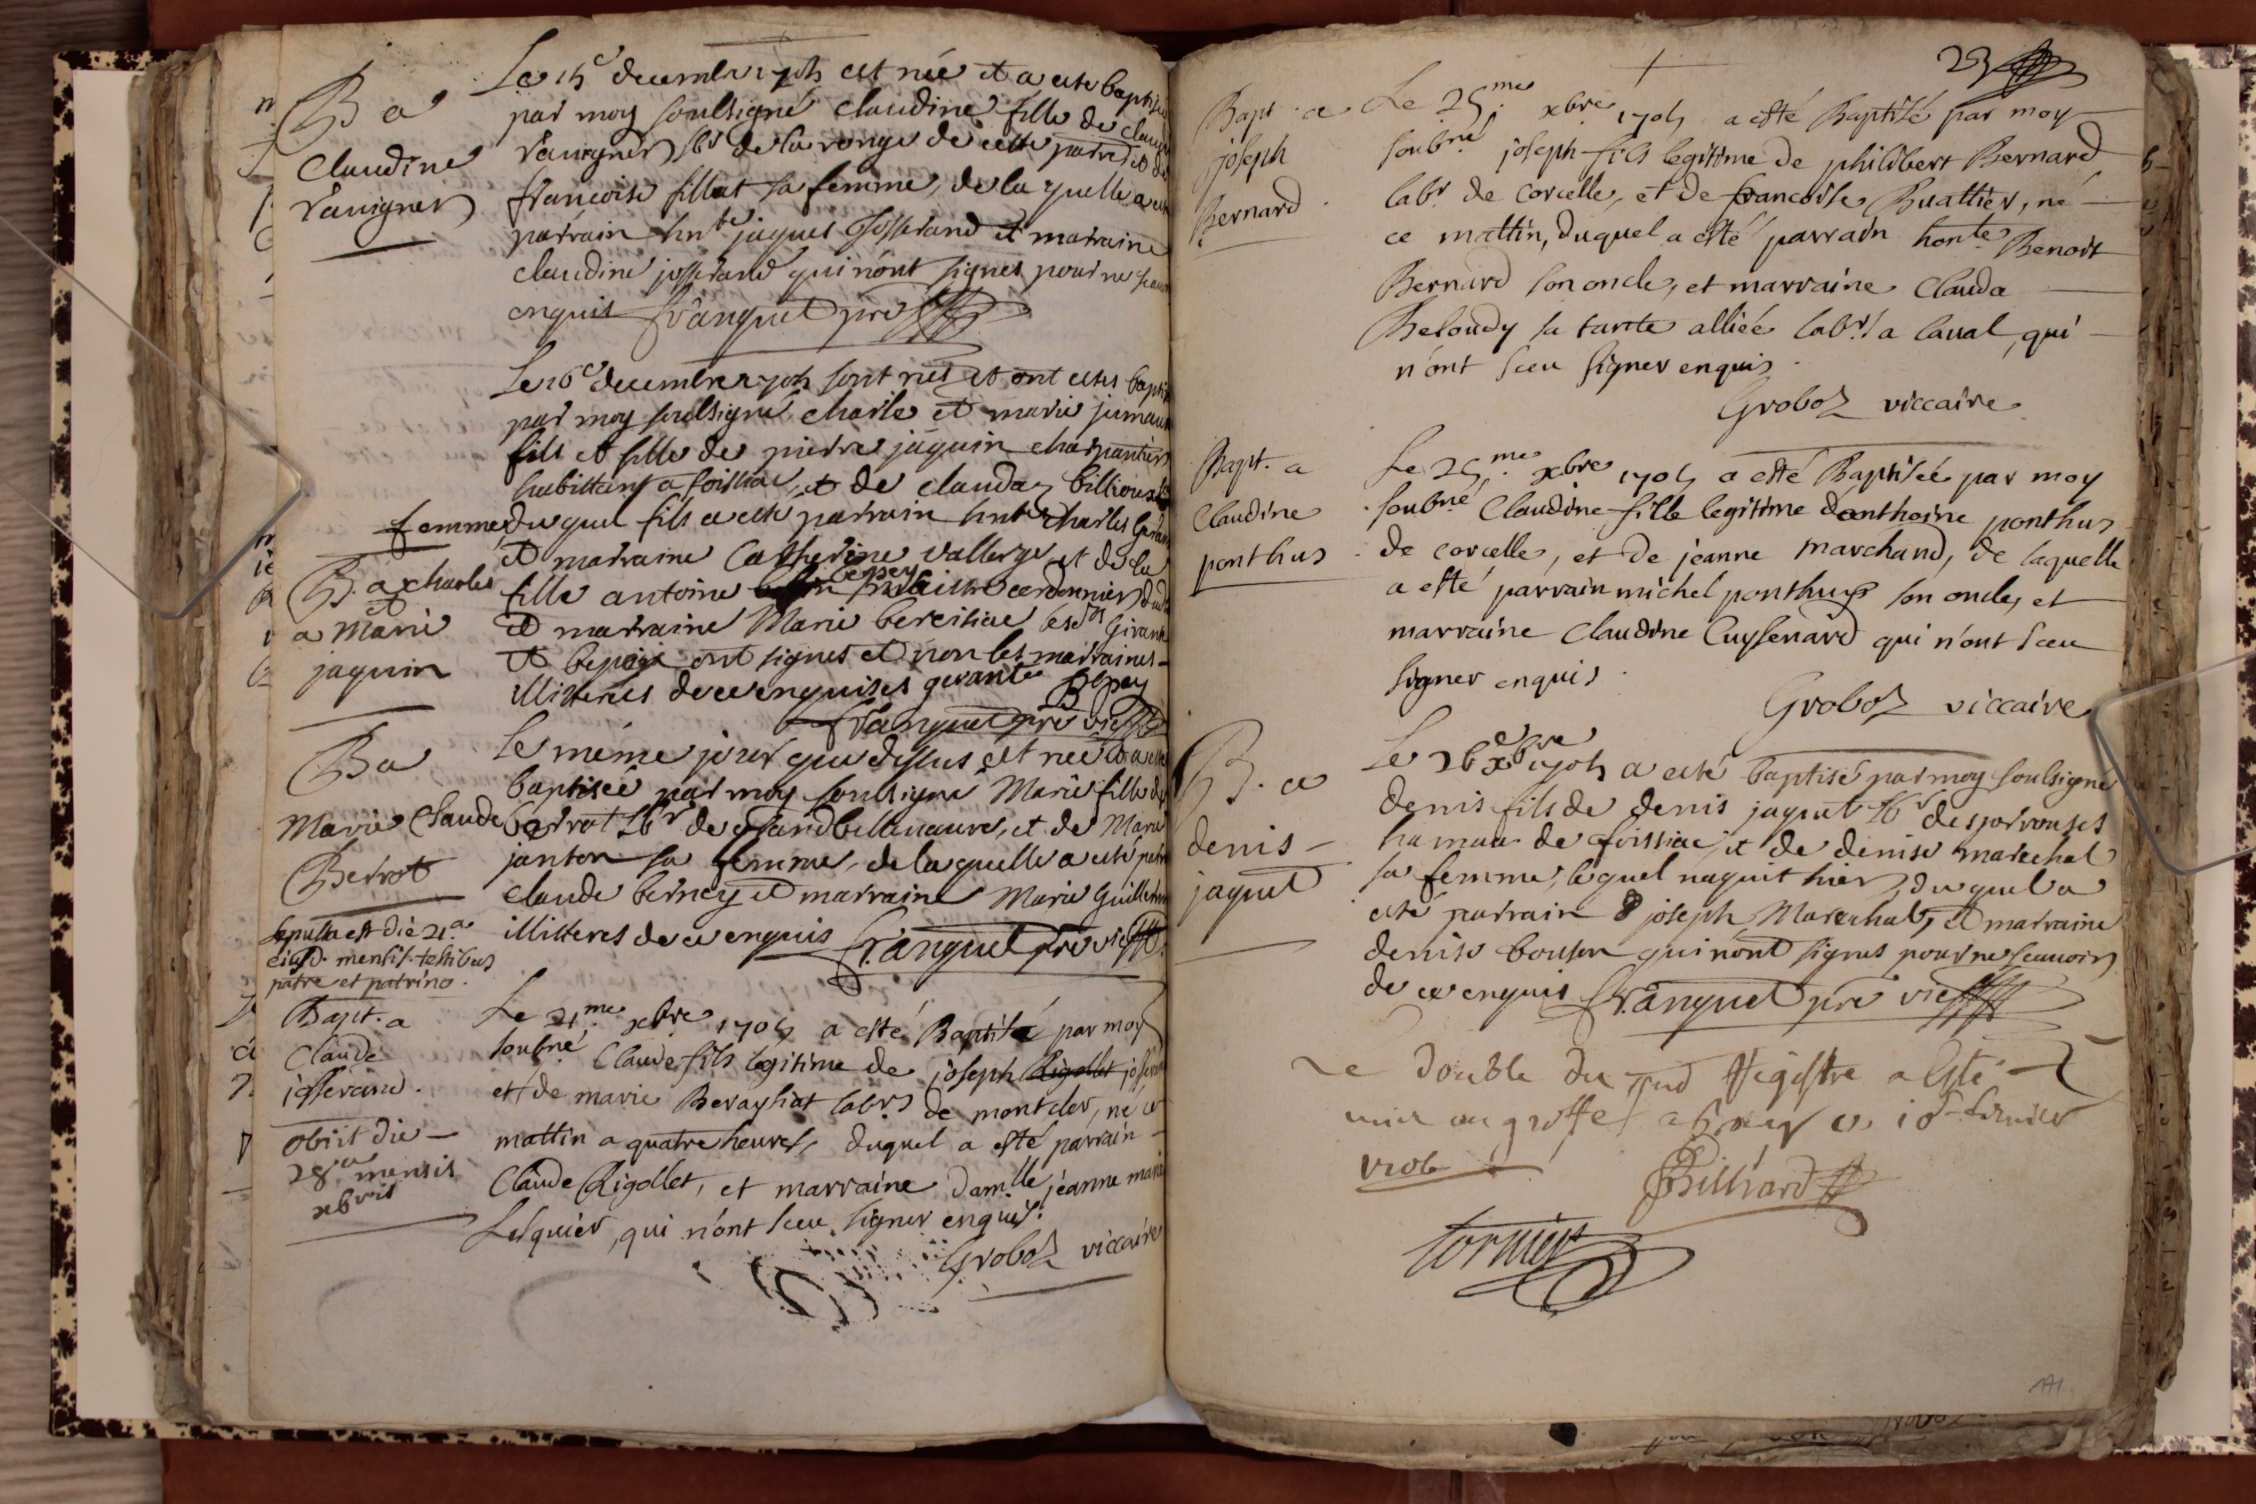 B a
Claudine
Vauigner
Le 15e decembre 1705 est née et a esté baptisée
par moy soubsigné claudine fille de claude
Vauigner lbr de la ronge de cette paroisse et de
francoise fillat sa femme, de la quelle a esté
parrain hnte jaques Josserand et marraine
claudine josserand qui n'ont signes pour ne scauoir
enquis franquet pre
B. a charles
et
a Marie
jaquin
Le 16e decembre 1705 sont nes et ont estes baptises
par moy soubsigné charle et marie jumeaux
fils et fille de pierre jaquin charpantier
habittant a foissia, et de clauda billioux sa
femme, du quel fils a esté parrain hnte charles
et marraine Catherine Vallerge et de la
fille antoine bepey cordonnier
et marraine Marie bereiliac lesd
et bepey ont signes et non les marraines
illitteres de ce enquises gerante Bepey
franquet pre vic
B a
Marie Claude
Berrot
Le même jour que dessus est née et a esté
baptisée par moy soubsigné Marie fille de
berrot lbr de et de Marie
janton sa femme, de la quelle a esté parrain
claude berney et marraine Marie Guillemin
illitteres de ce enquis franquet pre vic
Sepulta est die 21a
eiusd. mensis testibus
patre et patrino.
Bapt. a
Claude
josserand.
Le 21me xbre 1705 a esté Baptisé par moy
soubné Claude fils legitime de joseph Rigollet josserand
et de marie Berayhat labrs de montcler, né ce
mattin a quatre heures, duquel a esté parrain
Claude Rigollet, et marraine damlle jeanne marie
Lesquier, qui n'ont sceu signer enquis.
Groboz viccaire
obiit die
28a mensis
xbris
23
Bapt. a
joseph
Bernard
Le 25me xbre 1705 a esté Baptisé par moy
soubné joseph fils legitime de philibert Bernard
labr de corcelle, et de francoise Buattier, né
ce mattin, duquel a esté parrain honte Benoit
Bernard son oncle, et marraine Clauda
Beloudy sa tante alliée labr a laual, qui
n'ont sceu signer enquis.
Groboz viccaire
Bapt. a
Claudine
ponthus
Le 25me xbre 1705 a esté Baptisée par moy
soubné Claudine fille legitime d'anthoine ponthus
de corcelle, et de jeanne marchand, de laquelle
a esté parrain michel ponthus son oncle, et
marraine Claudine Cuysenard qui n'ont sceu
signer enquis.
Groboz viccaire
B. a
denis
jaquet
Le 26e xbre 1705 a esté baptisé par moy soubsigné
denis fils de denis jaquet lbr des parrouses
hamau de foissiac, et de denise marechal
sa femme, lequel naquit hier, du quel a
esté parrain joseph Marechal, et marraine
denise bouson qui n'ont signes pour ne scauoir
de ce enquis franquet pre vic
Le double du Registre a esté
mis au greffe ce feurier
1706
Billiard
tornier